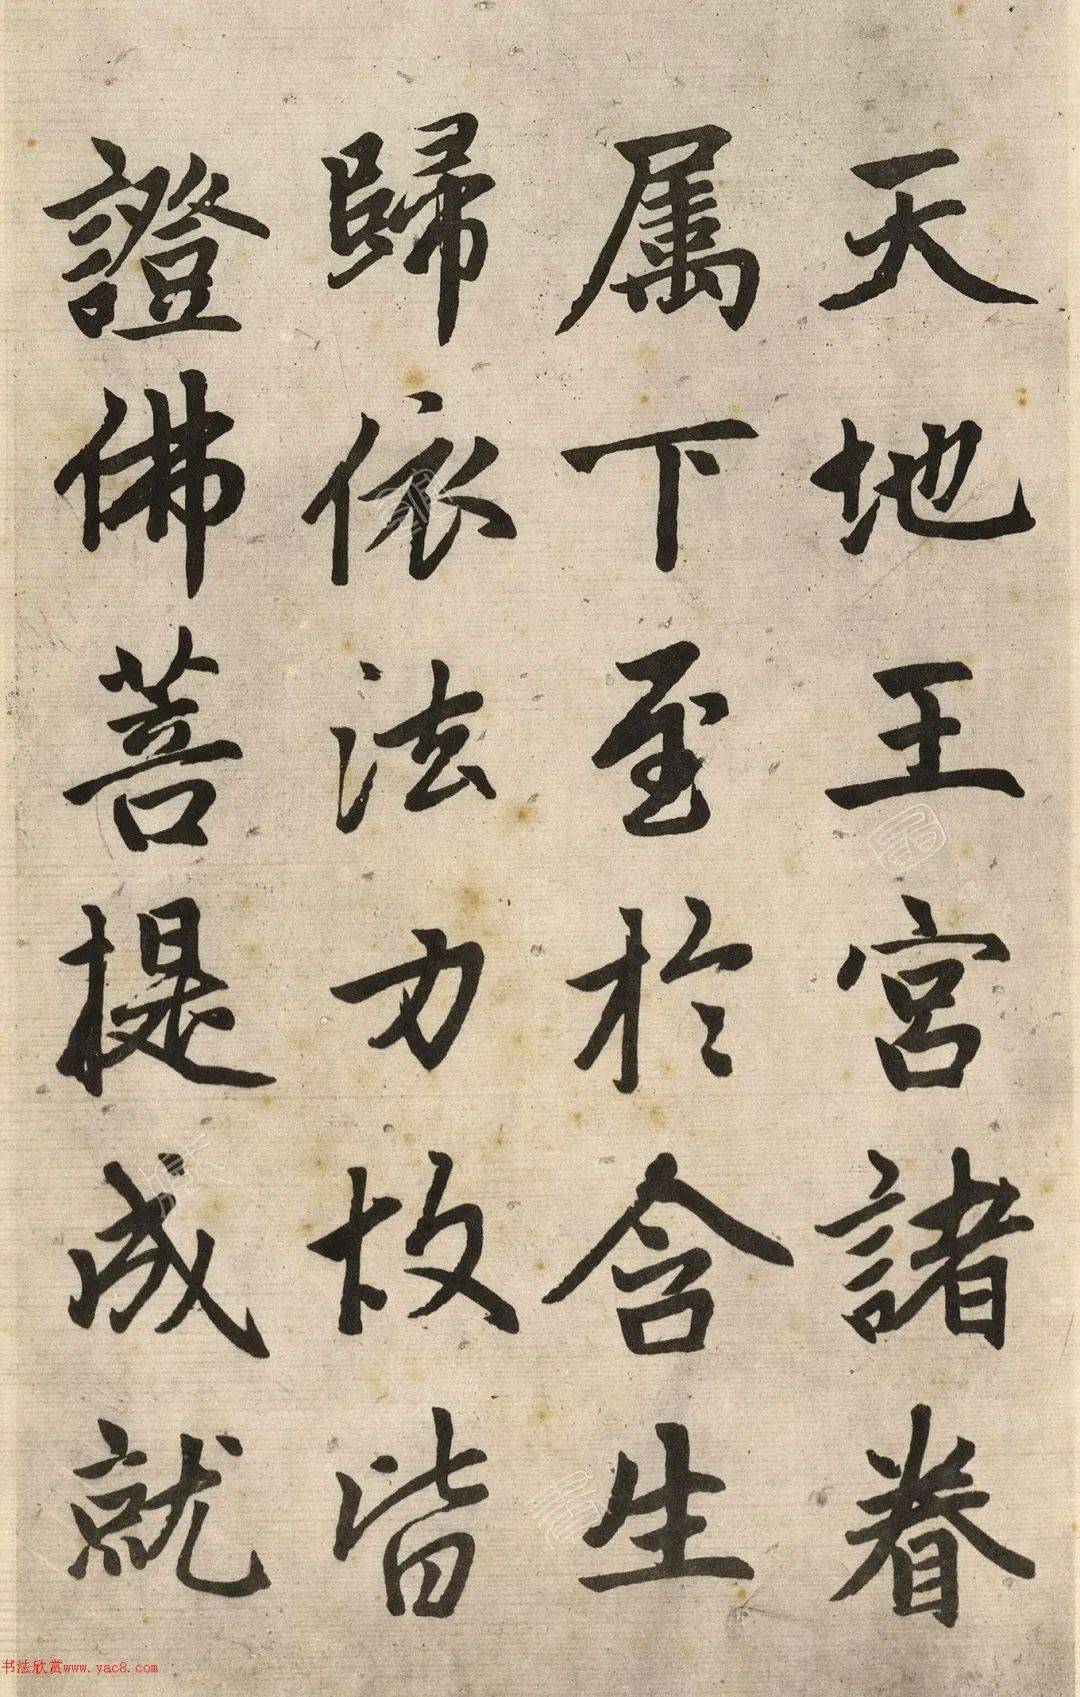 天地王宮諸眷
属下至於含生
歸依法力故皆
證佛菩提成就
书法欣赏www.yac8.com